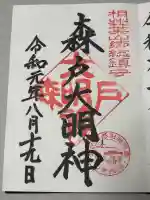 相州葉山郷総鎮守
森戸大明神
令和元年八月十九日